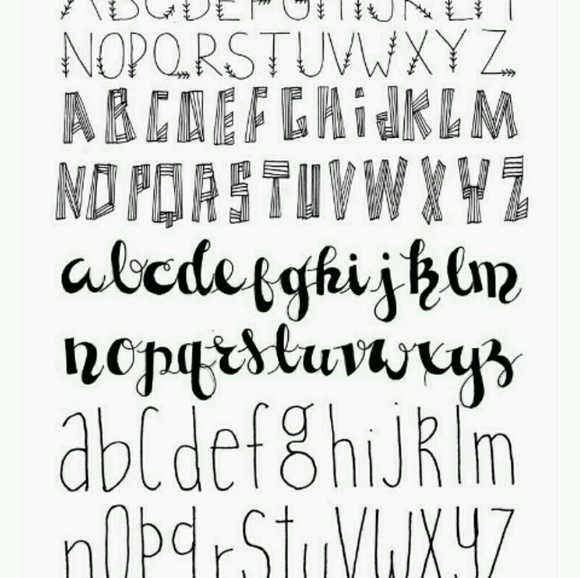 ABCDEFGHIJKLM
NOPQRSTUVWXYZ
ABCDEFGHiJKLM
NOPQRSTUVWXYZ
abcdefghijklm
nopqrstuvwxyz
abcdefghijklm
nopqrstuvwxyz